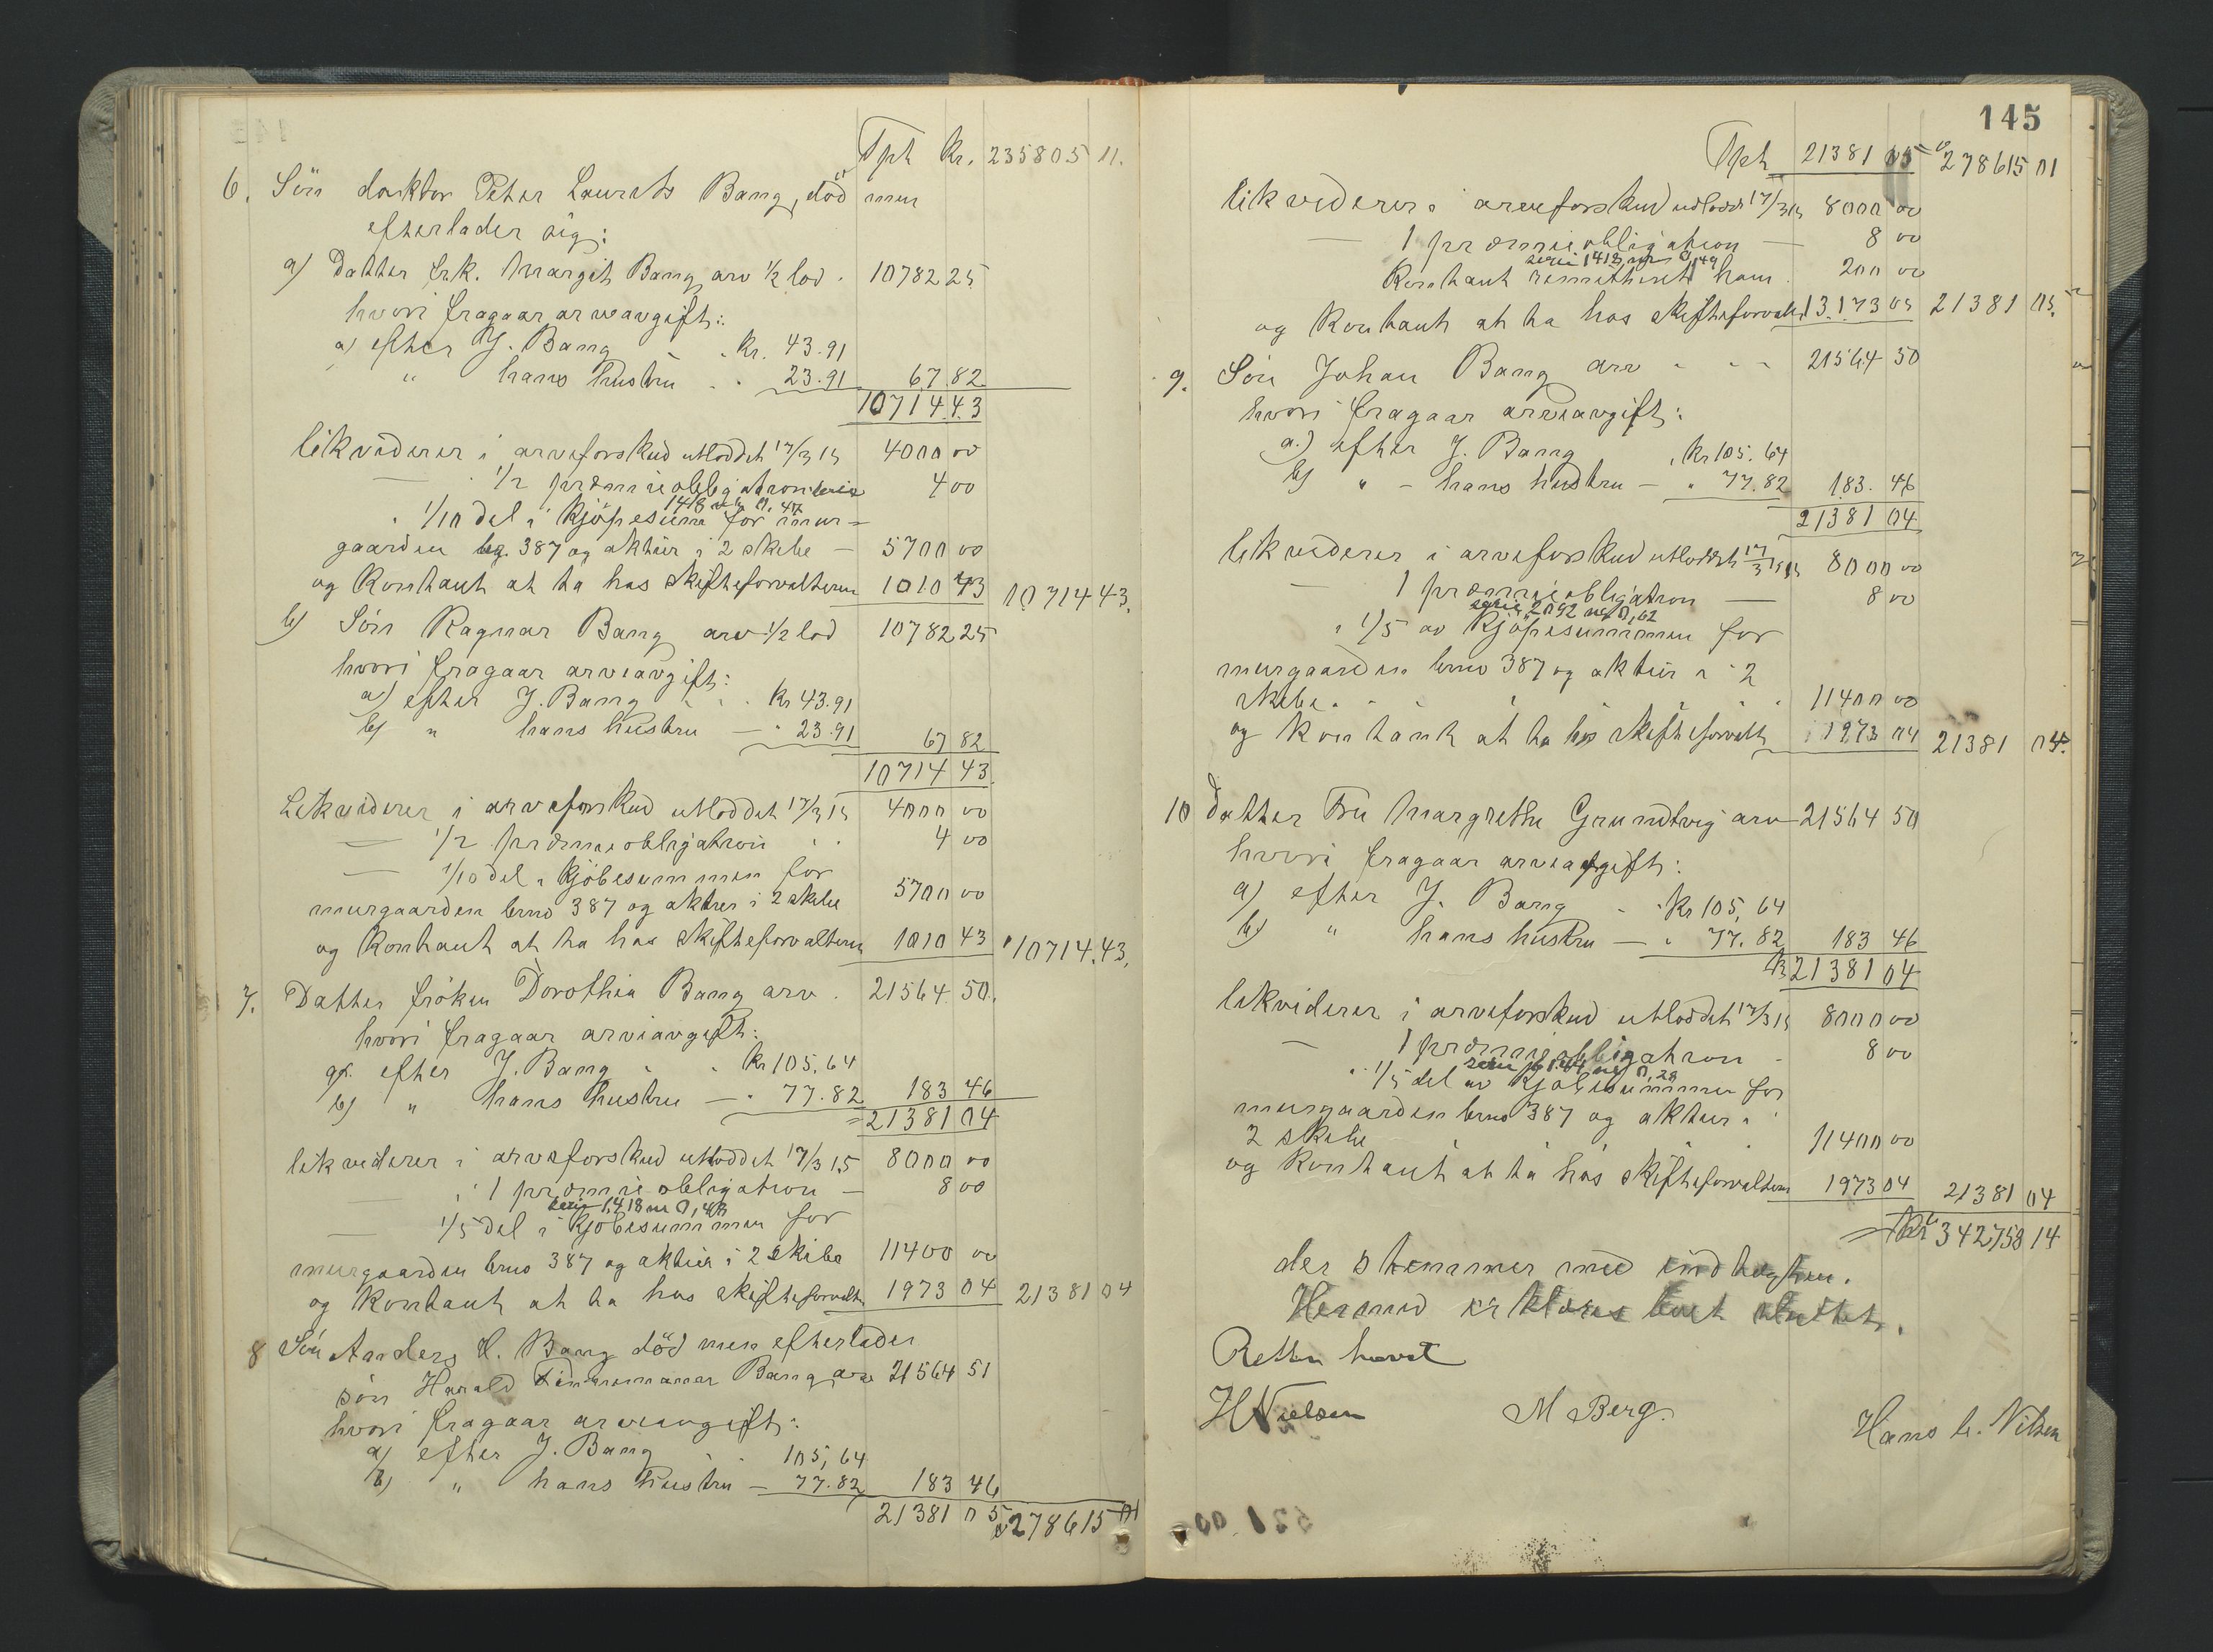 Tpt Kr. 235805 11.
6. Sön doktor Peter Laurits Bang, död men
efterlader sig:
a) Datter frk. Margit Bang arv 1/2 lod . 10782 25
hvori fragaar arveavgift:
a) efter J. Bang . Kr. 43.91
" hans hustru . . 23.91 67.82
10714 43
likviderer i arveforskud utloddet 17/3 15 4000 00
— 1/2 præmieobligation serie 4 00
1418 nr 0,47
. 1/10 del i kjöpesum for mur-
gaarden bg. 387 og aktier i 2 skibe — 5700 00
og Kontant at ta hos skifteforvalteren 1010 43 10714 43.
b) Sön Ragnar Bang arv 1/2 lod 10782 25
hvori fragaar arveavgift:
a) efter J. Bang . . . Kr 43.91
b) " hans hustru — . 23.91 67 82
10714 43.
Likviderer i arveforskud utloddet 17/3 15 4000 00
— 1/2 præmieobligation . . 4 00
— 1/10 del i kjöbesummen for
murgaarden brno 387 og aktier i 2 skibe 5700 00
og Kontant at ta hos skifteforvalteren 1010 43 " 10714.43.
7. Datter fröken Dorothea Bang arv . 21564 50.
hvori fragaar arveavgift:
a. efter J. Bang . . Kr 105,64
b) " hans hustru — . 77.82 183 46
21381 04
likviderer i arveforskud utloddet 17/3 15 8000 00
— . 1 præmieobligation — 8 00
serie 1418 nr 0,48
— 1/5 del i kjöbesummen for
murgaarden brno 387 og aktier i 2 skibe 11400 00
og Kontant at ta hos skifteforvalte 1973 04 21381 04
8 Sön Anders H. Bang död men efterlader
sön Harald Bang arv 21564 51
hvori fragaar arveavgift:
a) efter J. Bang . . 105,64
b) " hans hustru — 77.82 183 46
21381 05 278615 01
145
Tpt 21381 05 278615 01
likviderer i arveforskud utlodd 17/3 15 8000 00
— 1 præmieobligation — 8 00
serie 1418 nr 0,49
Kontant remitteret ham . 200 00
og Kontant at ta hos skifteforvalt. 13.173 05 21381 05.
9. Sön Johan Bang arv - - - 21564 50
hvori fragaar arveavgift:
a.) efter J. Bang , Kr 105.64
b) " - hans hustru — " 77.82 183. 46
21381 04
likviderer i arveforskud utloddet 17/3 15 8000 00
— 1 præmieobligation — 8 00
serie 2092 nr 0,62
" 1/5 av kjöpesummen for
murgaarden brno 387 og aktier i 2
skibe . . . . 11400 00
og kontant at ta hos skifteforvalt 1973 04 21381 04.
10 Datter Fru Margrethe Grundtvig arv 21564 50
hvori fragaar arveavgift:
a) efter J. Bang . . Kr 105,64
b) " hans hustru — " 77.82 183 46
Kr 21381 04
likviderer i arveforskud utloddet 17/3 15 8000 00
— 1 præmieobligation - 8 00
" 1/5 del av kjöbesummen for
murgaarden brno 387 og aktier i
2 skibe . . . 11400 00
og Kontant at ta hos skifteforvalteren 1973 04 21381 04
Kr 342758 14
der stemmer med indtægten.
Hermed erklæres boet sluttet.
Retten hævet
HNielsen M Berg. Hans L. Nilsen